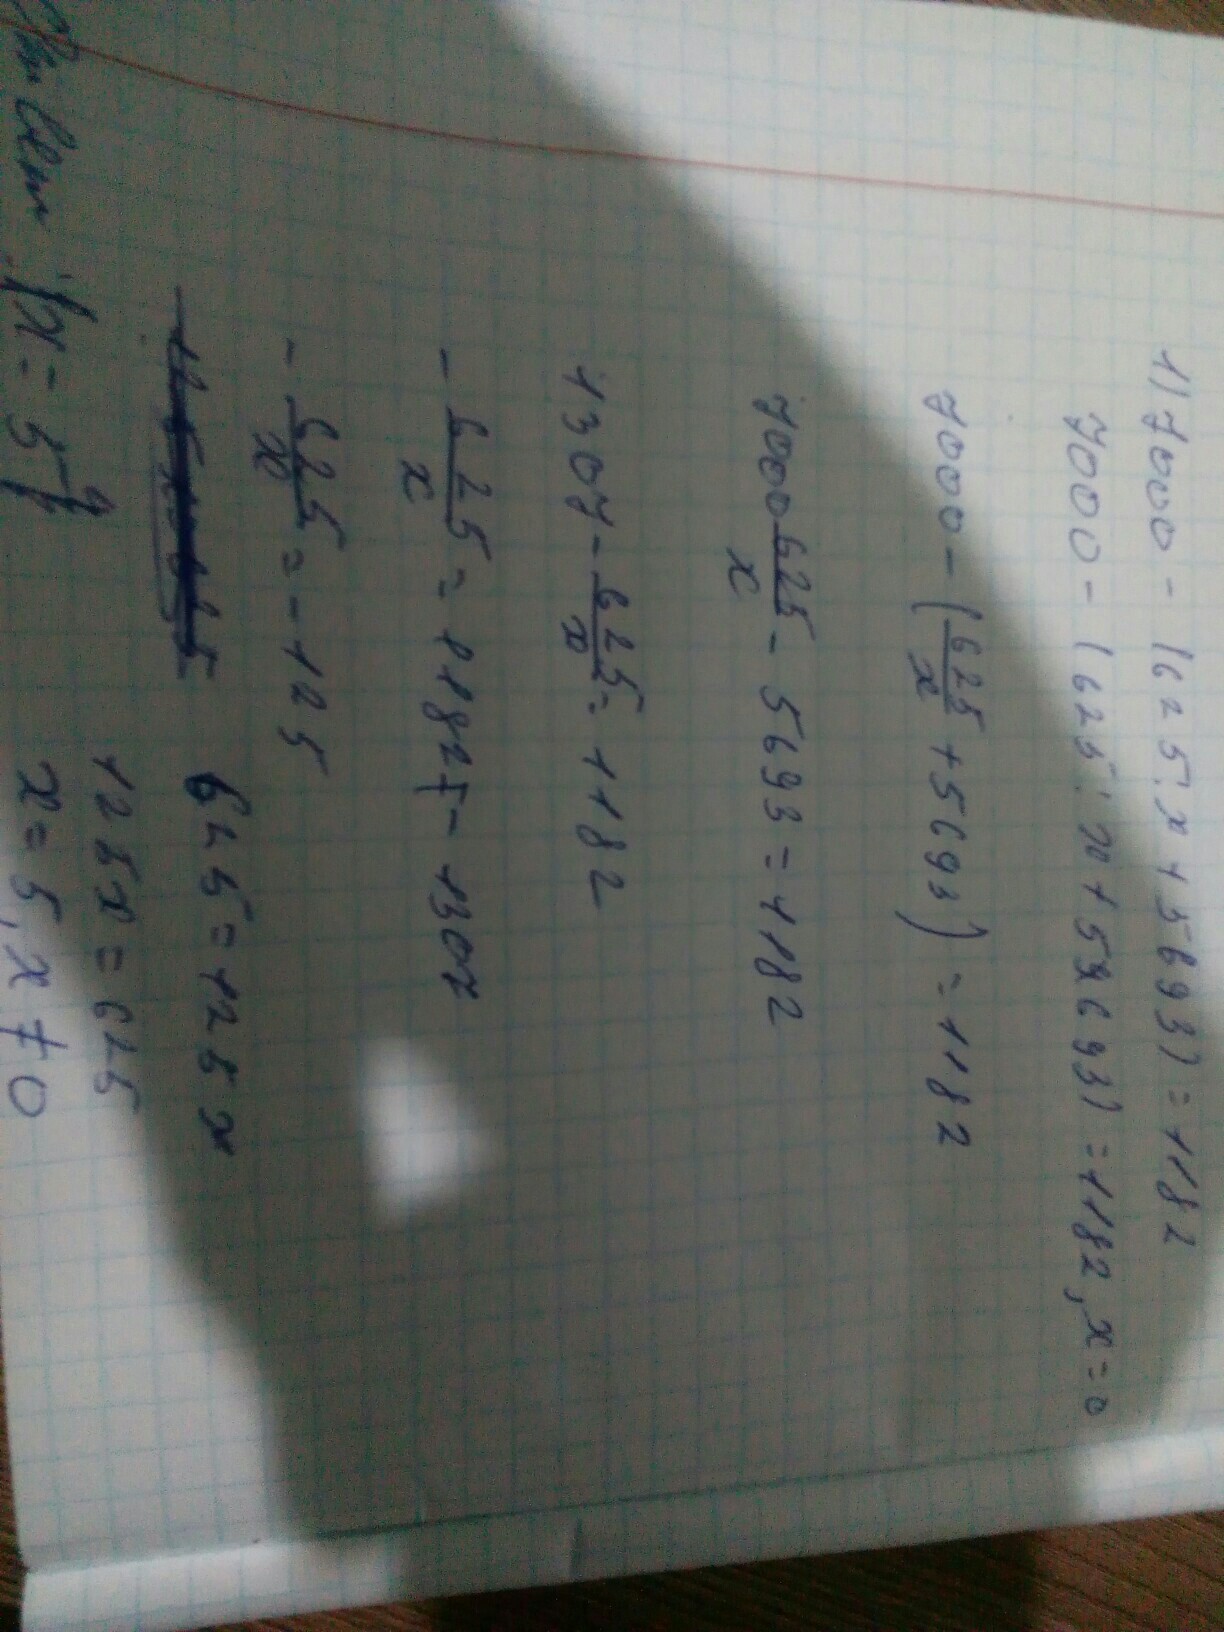 1) 7000 - (625:x+5693)=1182
7000 - (625:x+5693)=1182, x=0
7000-(625/x+5693)=1182
7000 625/x - 5693=1182
1307-625/x=1182
-625/x=1182-1307
-625/x=-125
625=125x
125x=625
x=5, x≠0
Ответ: {x=5}